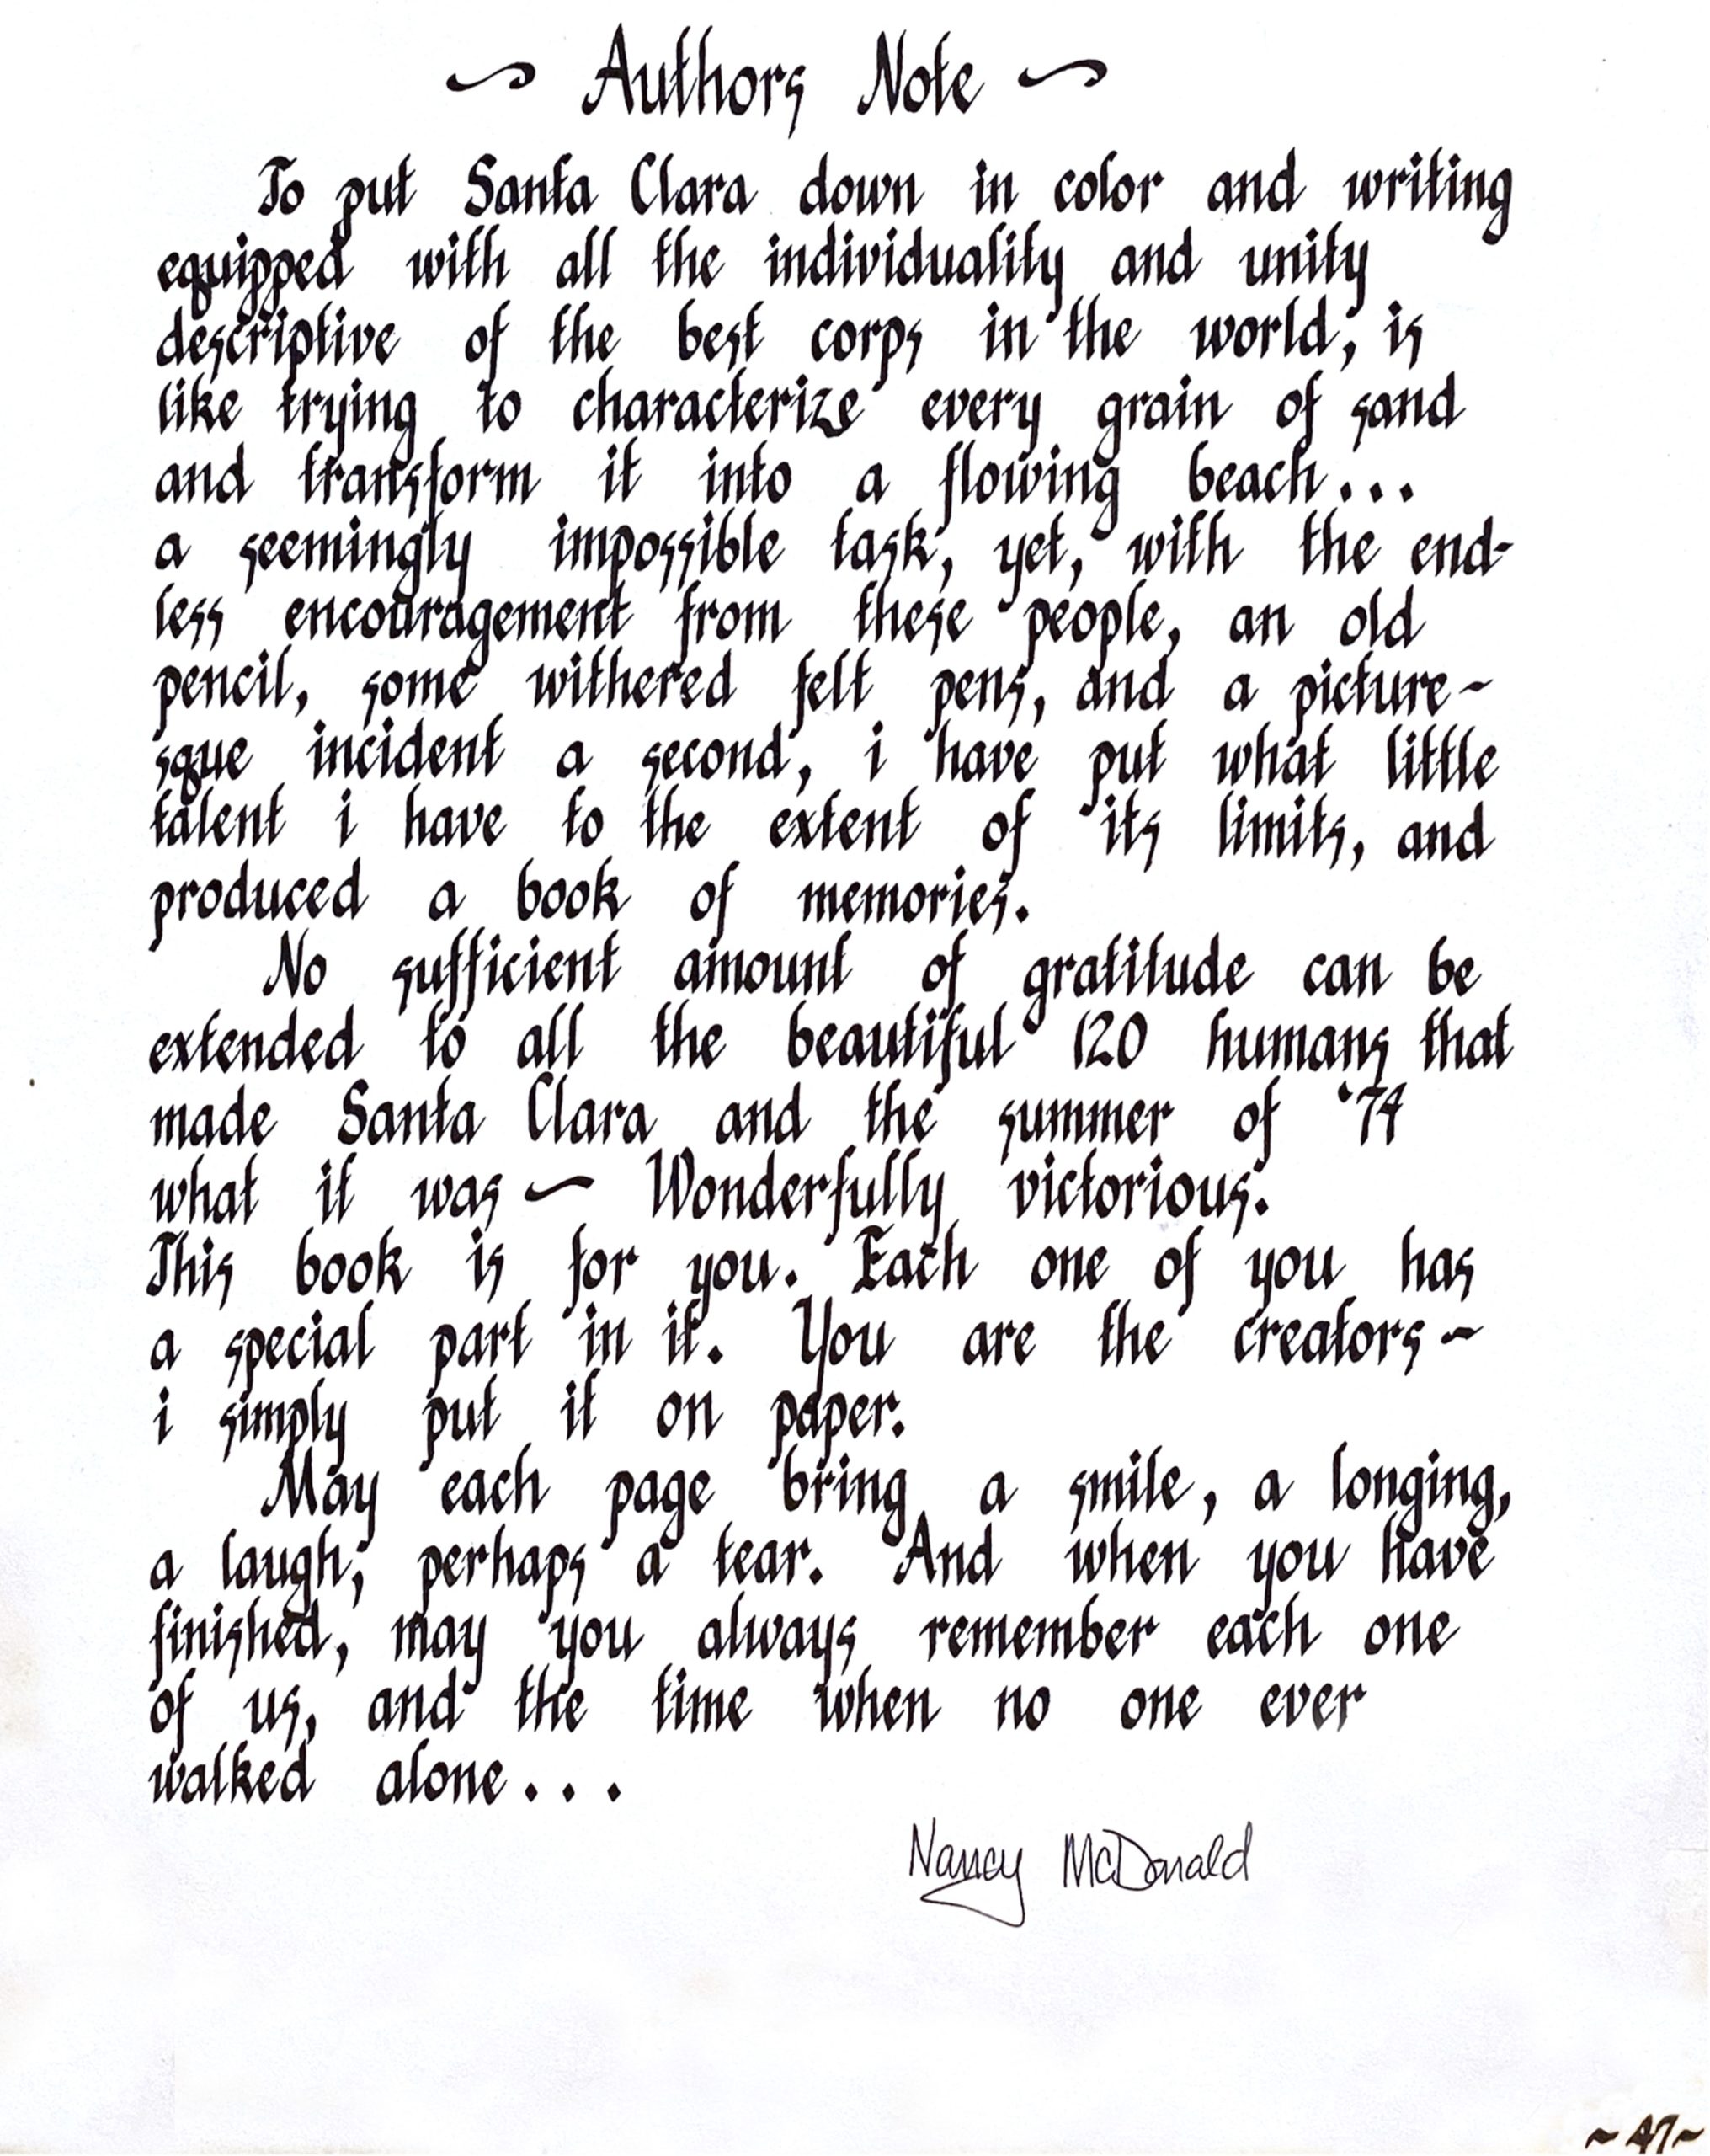 ~ Authors Note ~
To put Santa Clara down in color and writing
equipped with all the individuality and unity
descriptive of the best corps in the world, is
like trying to characterize every grain of sand
and transform it into a flowing beach...
a seemingly impossible task, yet, with the end-
less encouragement from these people, an old
pencil, some withered felt pens, and a picture~
sque incident a second, i have put what little
talent i have to the extent of its limits, and
produced a book of memories.
No sufficient amount of gratitude can be
extended to all the beautiful 120 humans that
made Santa Clara and the summer of '74
what it was ~ Wonderfully victorious.
This book is for you. Each one of you has
a special part in it. You are the creators ~
i simply put it on paper.
May each page bring a smile, a longing,
a laugh, perhaps a tear. And when you have
finished, may you always remember each one
of us, and the time when no one ever
walked alone...
Nancy McDonald
~ 47 ~